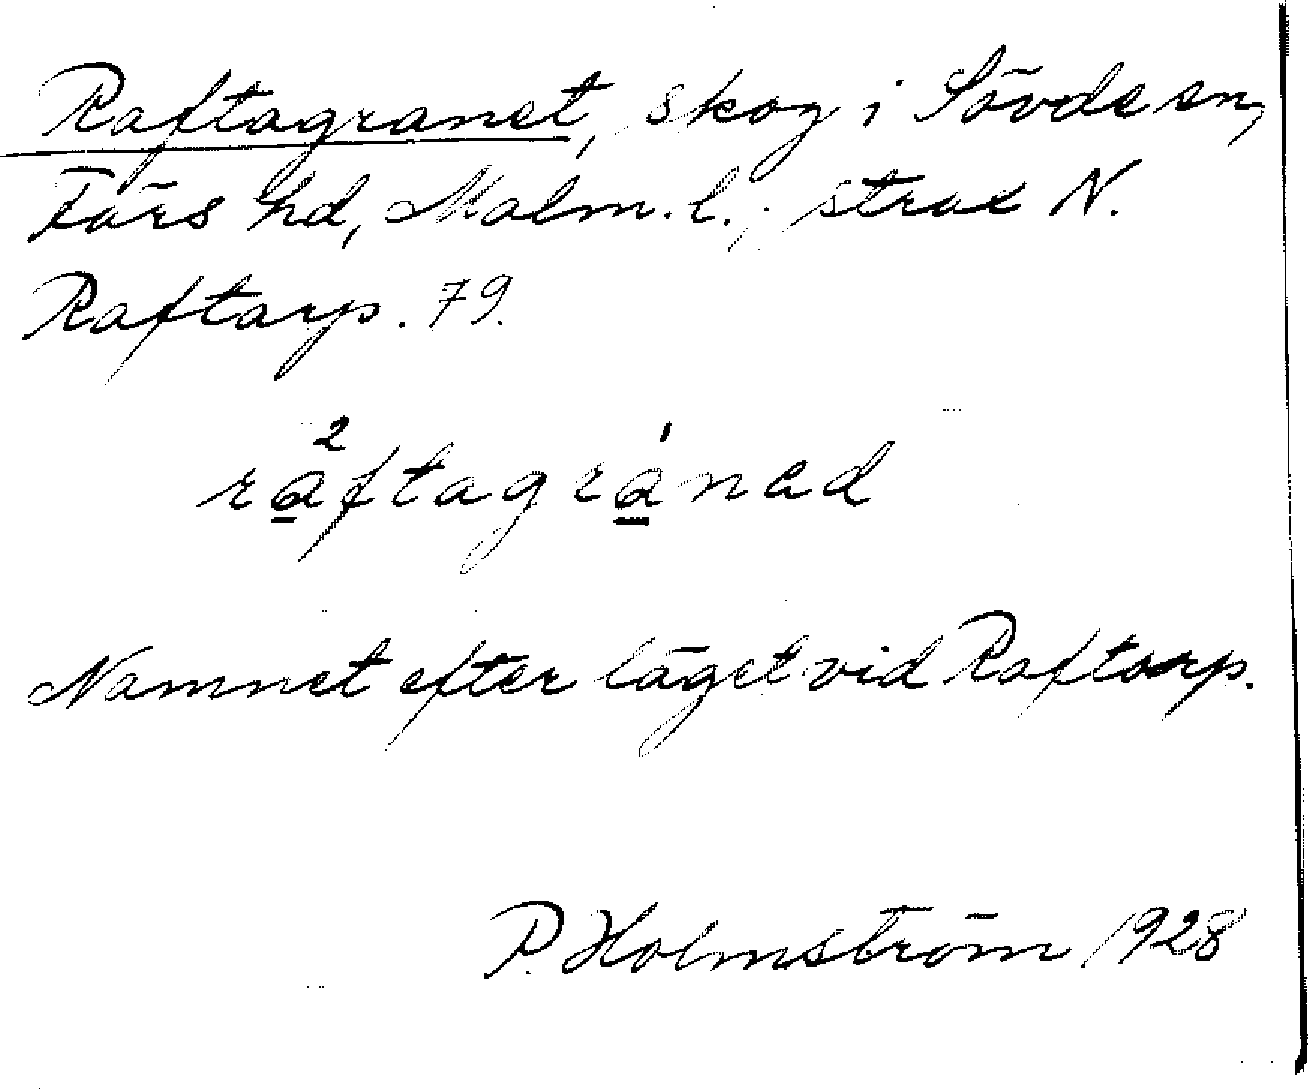 Raftagranet, skog i Sövde sn,
Färs hd, Malm. l.; strax N.
Raftarp. 79.
ra̲²ftagrá̲ned
Namnet efter läget vid Raftarp.
P. Holmström 1928